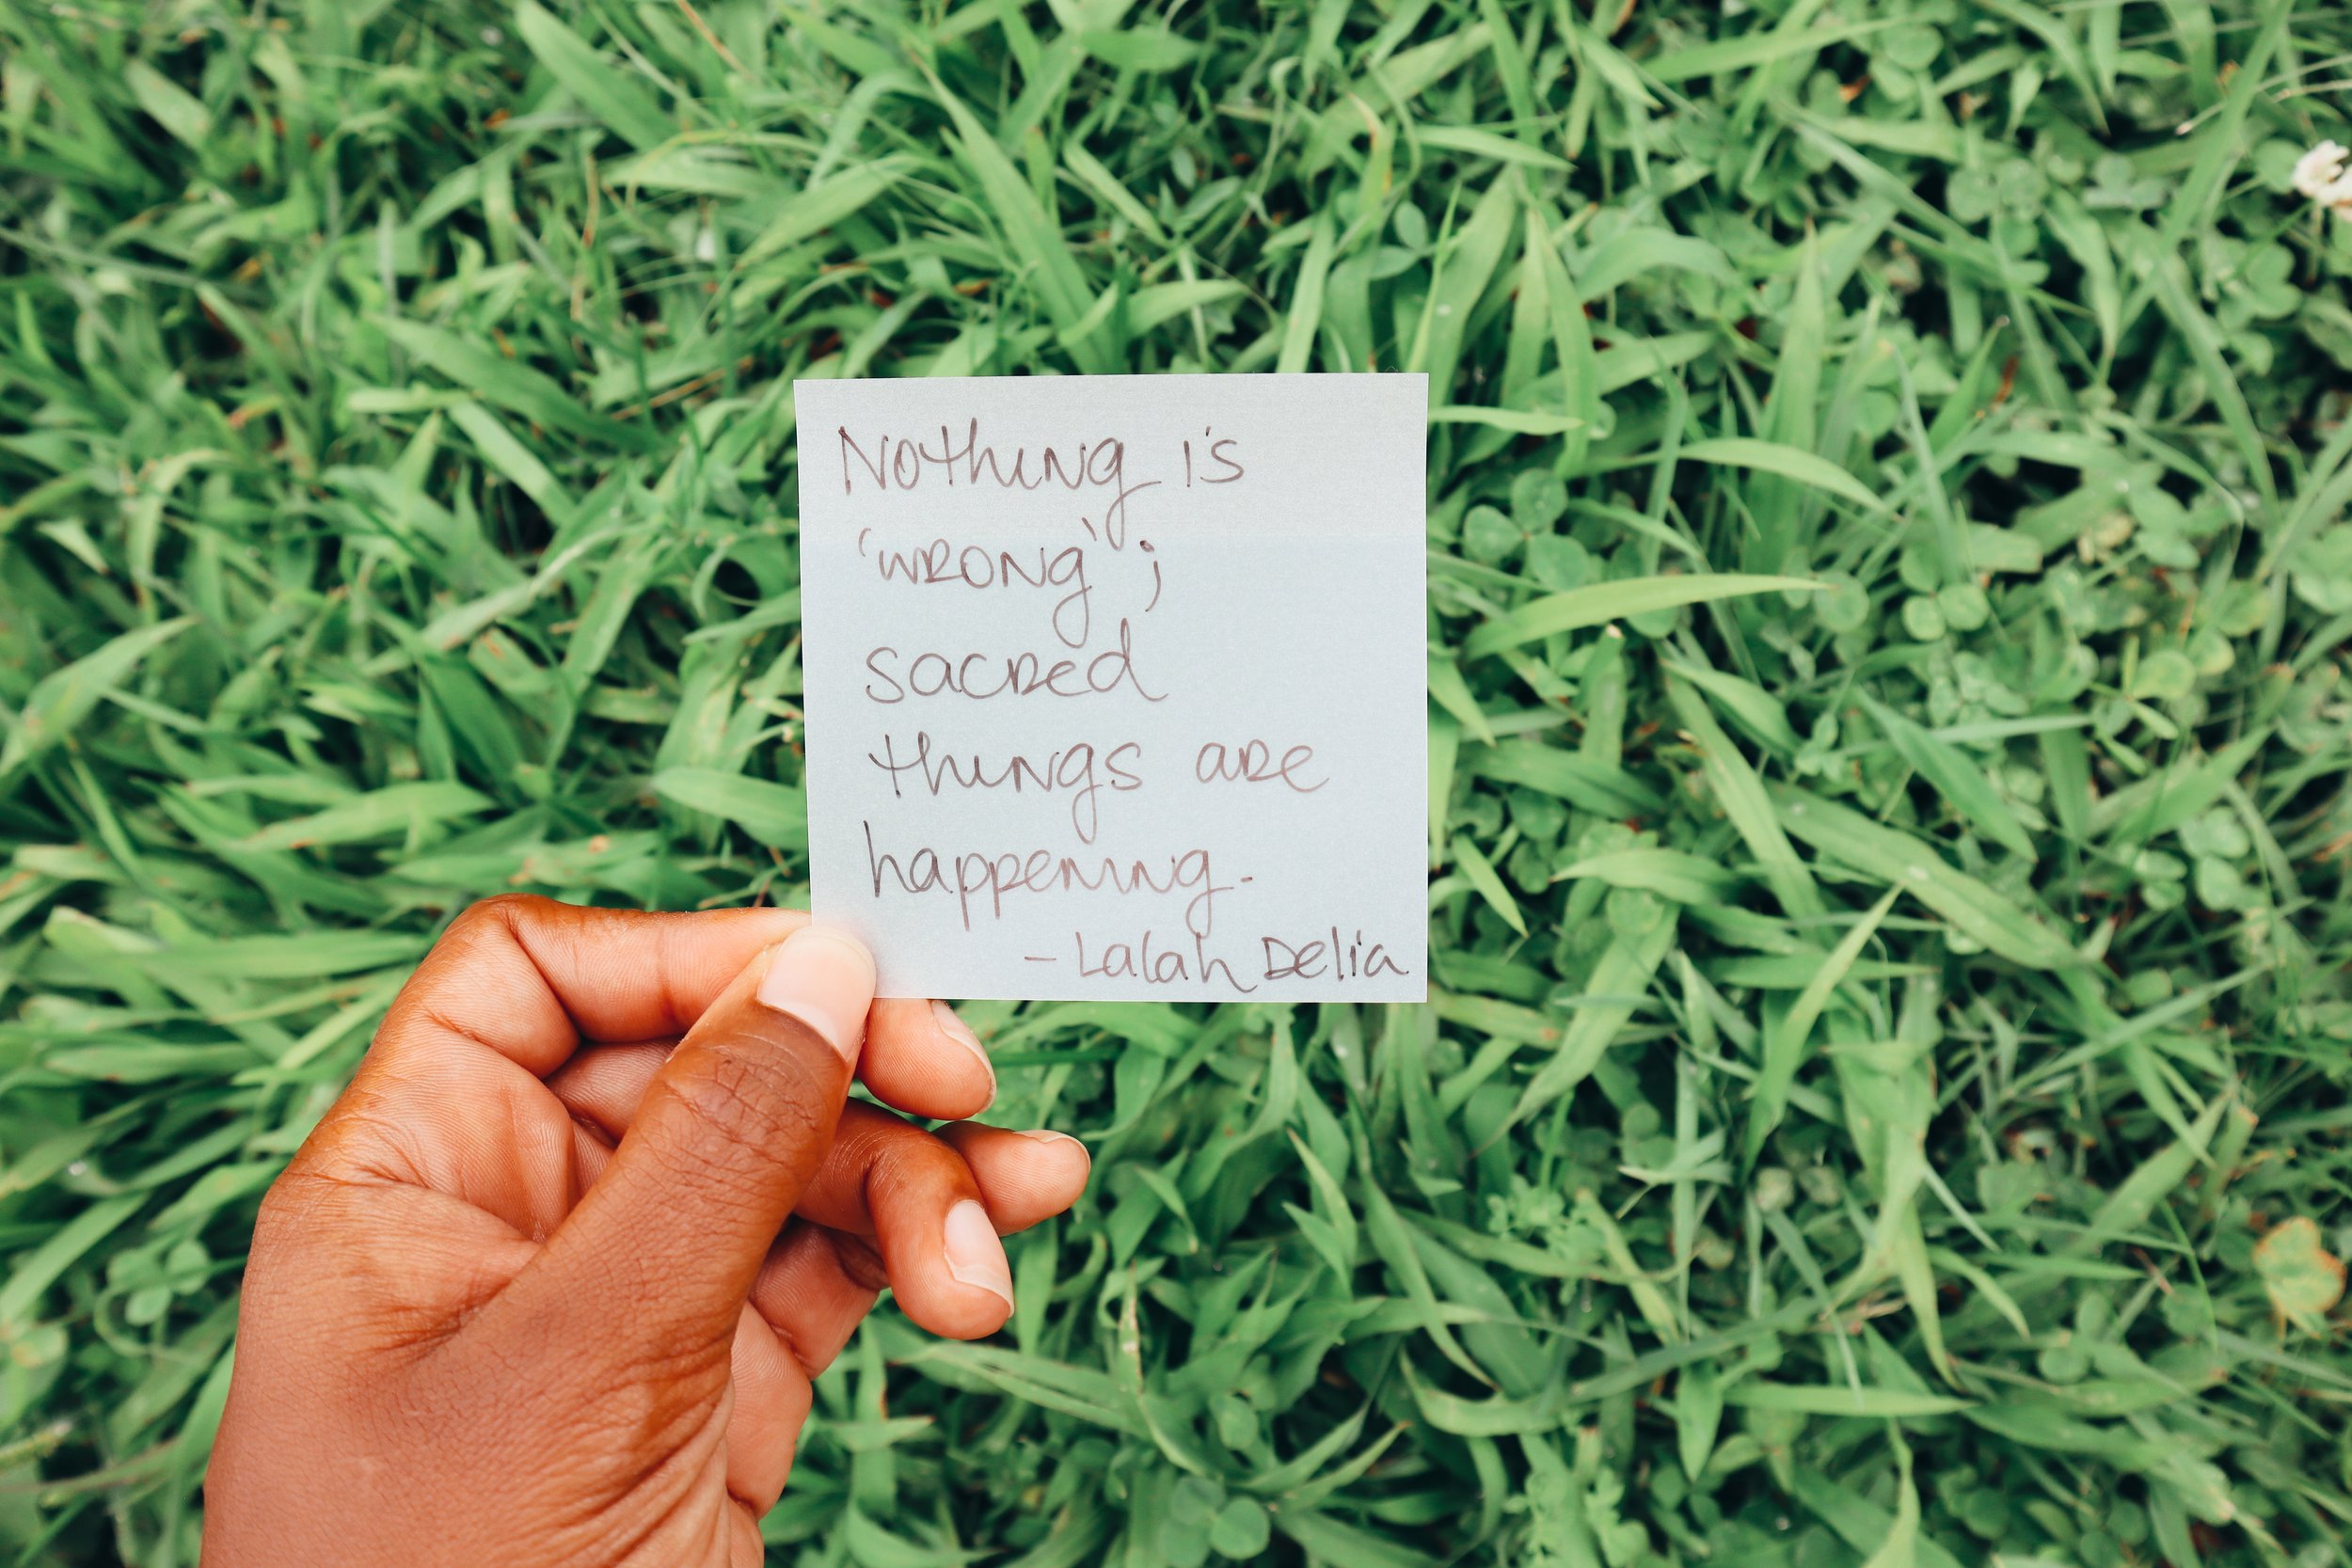 Nothing is
'wrong';
sacred
things are
happening.
- Lalah Delia